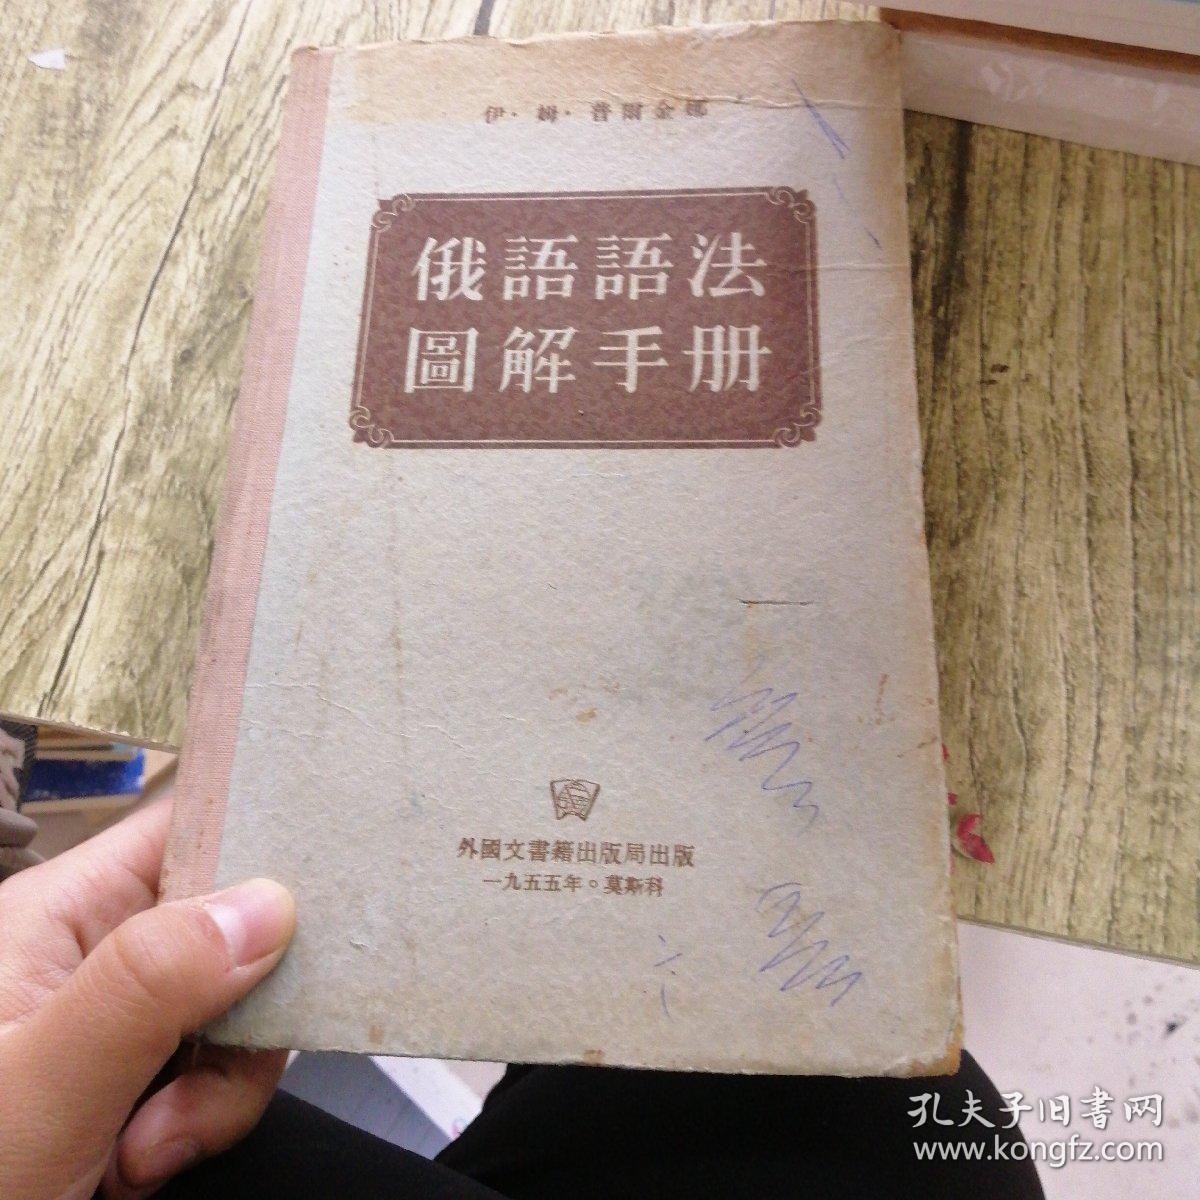 伊·姆·普爾金娜
俄語語法
圖解手册
外國文書籍出版局出版
一九五五年。莫斯科
孔夫子旧书网
www.kongfz.com